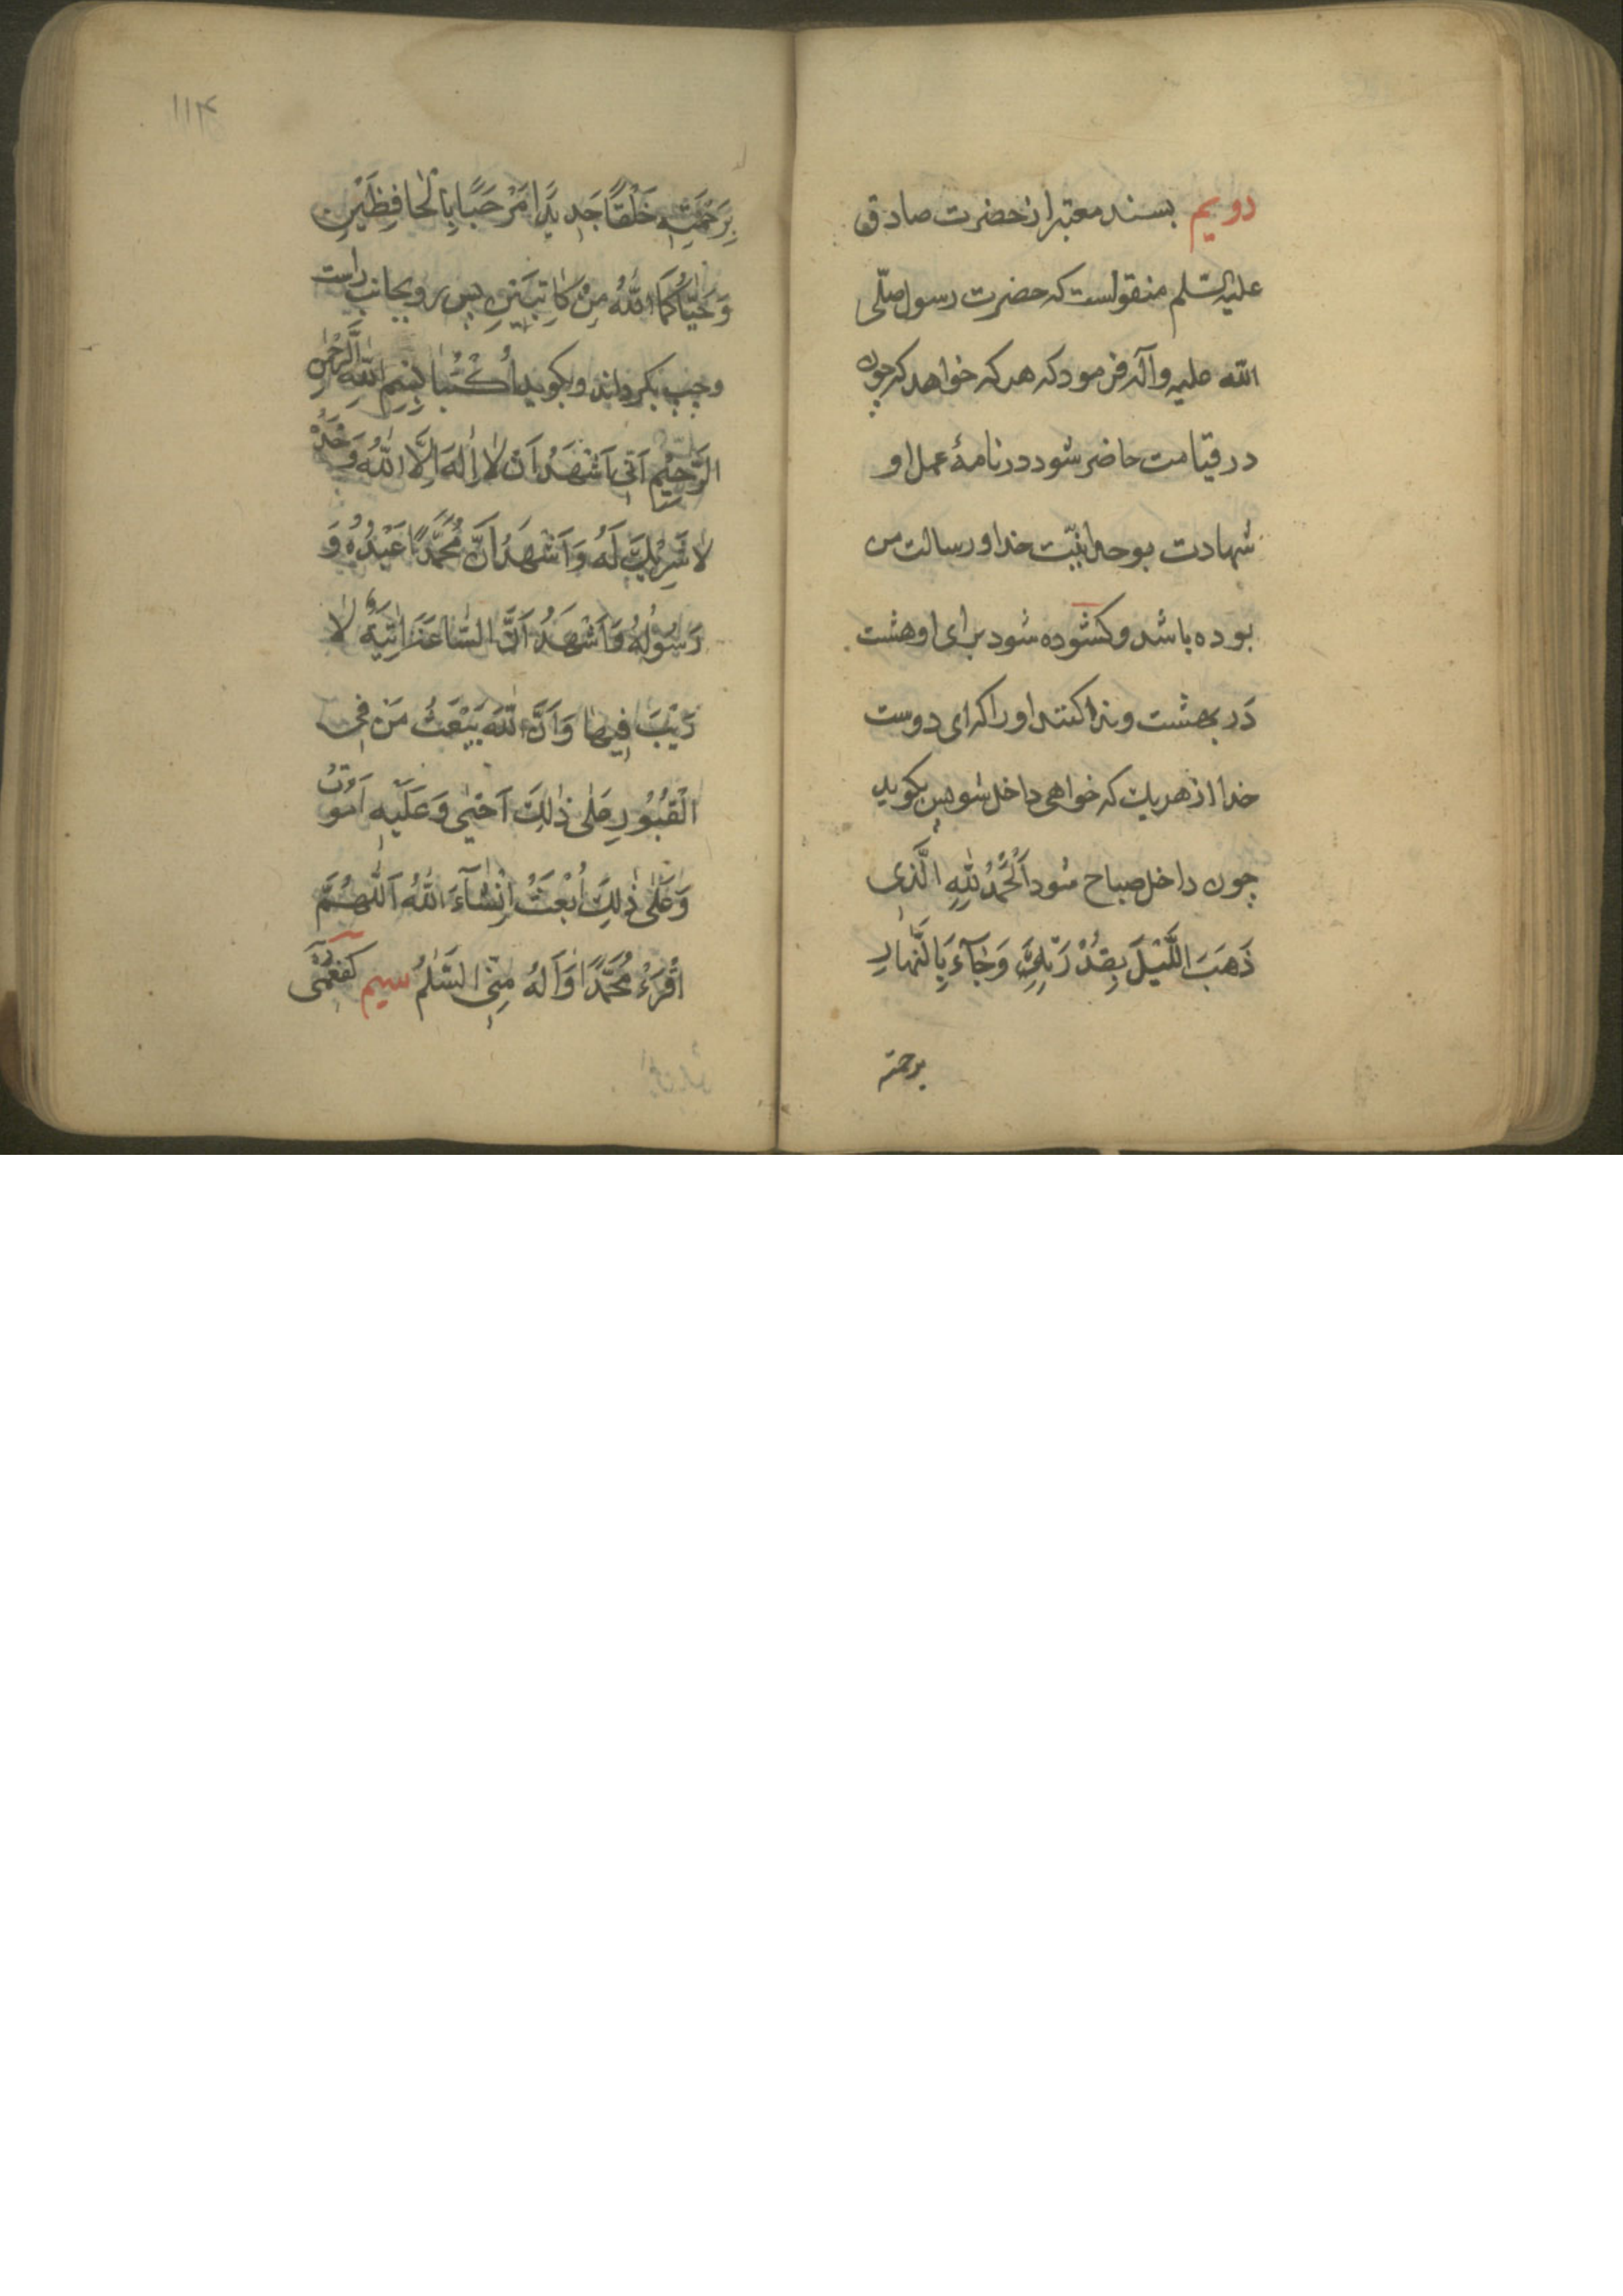 دویم بسند معتبر از حضرت صادق
علیه السّلم منقولست که حضرت رسول صلّی
الله علیه وآله فرمود که هر که خواهد که چون
در قیامت حاضر شود در نامهٔ عمل او
شهادت بوحدانیّت خدا و رسالت من
بوده باشد و کشوده شود برای او هشت
دَر بهشت و ندا کنند او را که ای دوست
خدا از هر یك که خواهی داخل شو پس بکوید
چون داخل صباح شود اَلْحَمْدُ لِلّٰهِ الَّذی
ذَهَبَ اللَّیْلَ بِقُدْرَتِهِ وَجٰآءَ بِالنَّهٰارِ
برحمته
۱۱۴
بِرَحْمَتِهِ خَلْقًا جَدِیدًا مَرْحَبًا بِالْحٰافِظَیْنِ
وَحَیّٰاکُمَا اللّٰهُ مِنْ کٰاتِبَیْنِ پس رو بجانب راست
وچپ بکرداند و بکوید اُکْتُبٰا بِسْمِ اللّٰهِ الرَّحْمٰنِ
الرَّحِیْمِ اَنّی اَشْهَدُ اَنْ لٰا اِلٰهَ اِلَّا اللّٰهُ وَحْدَهُ
لٰا شَرِیْكَ لَهُ وَاَشْهَدُ اَنَّ مُحَمَّدًا عَبْدُهُ وَ
رَسُوْلُهُ وَاَشْهَدُ اَنَّ السّٰاعَةَ اٰتِیَةٌ لٰا
رَیْبَ فِیهٰا وَاَنَّ اللّٰهَ یَبْعَثُ مَنْ فِی
الْقُبُوْرِ عَلٰی ذٰلِكَ اَحْیٰی وَعَلَیْهِ اَمُوْتُ
وَعَلٰی ذٰلِكَ اُبْعَثُ اِنْشٰآءَ اللّٰهُ اَللّٰهُمَّ
اقْرَءْ مُحَمَّدًا وَاٰلَهُ مِنِّی السَّلٰمُ سیم کَفْعَمی